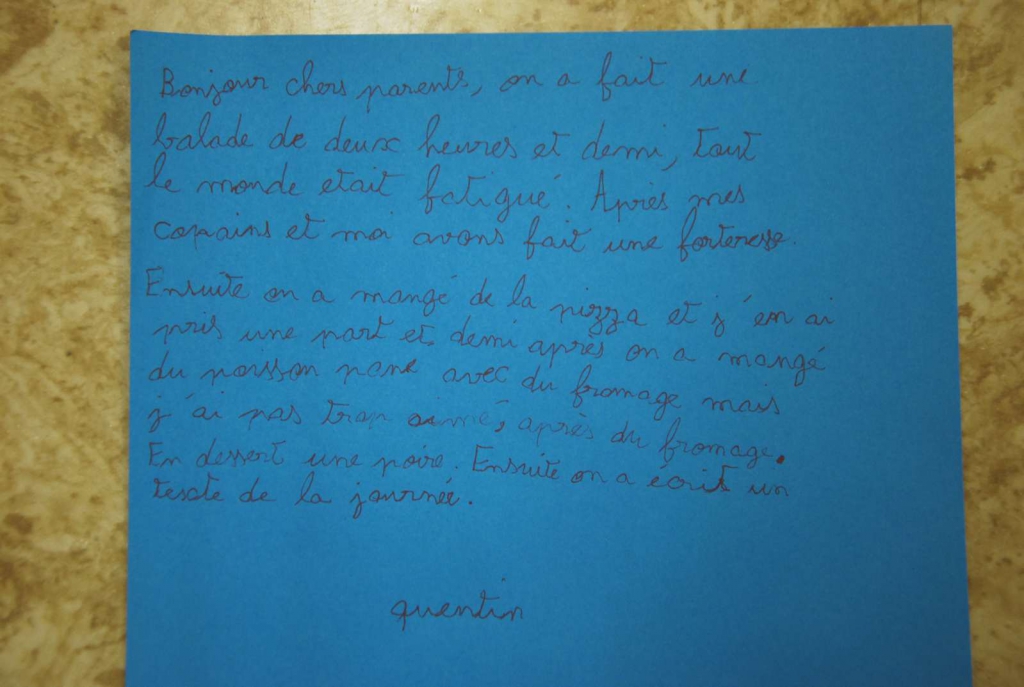 Bonjour chers parents, on a fait une
balade de deux heures et demi, tout
le monde etait fatigué. Après mes
copains et moi avons fait une forteresse.
Ensuite on a mangé de la pizza et j'en ai
pris une part et demi après on a mangé
du poisson pané avec du fromage mais
j'ai pas trop aimé, après du fromage.
En dessert une poire. Ensuite on a écrit un
texte de la journée.
quentin